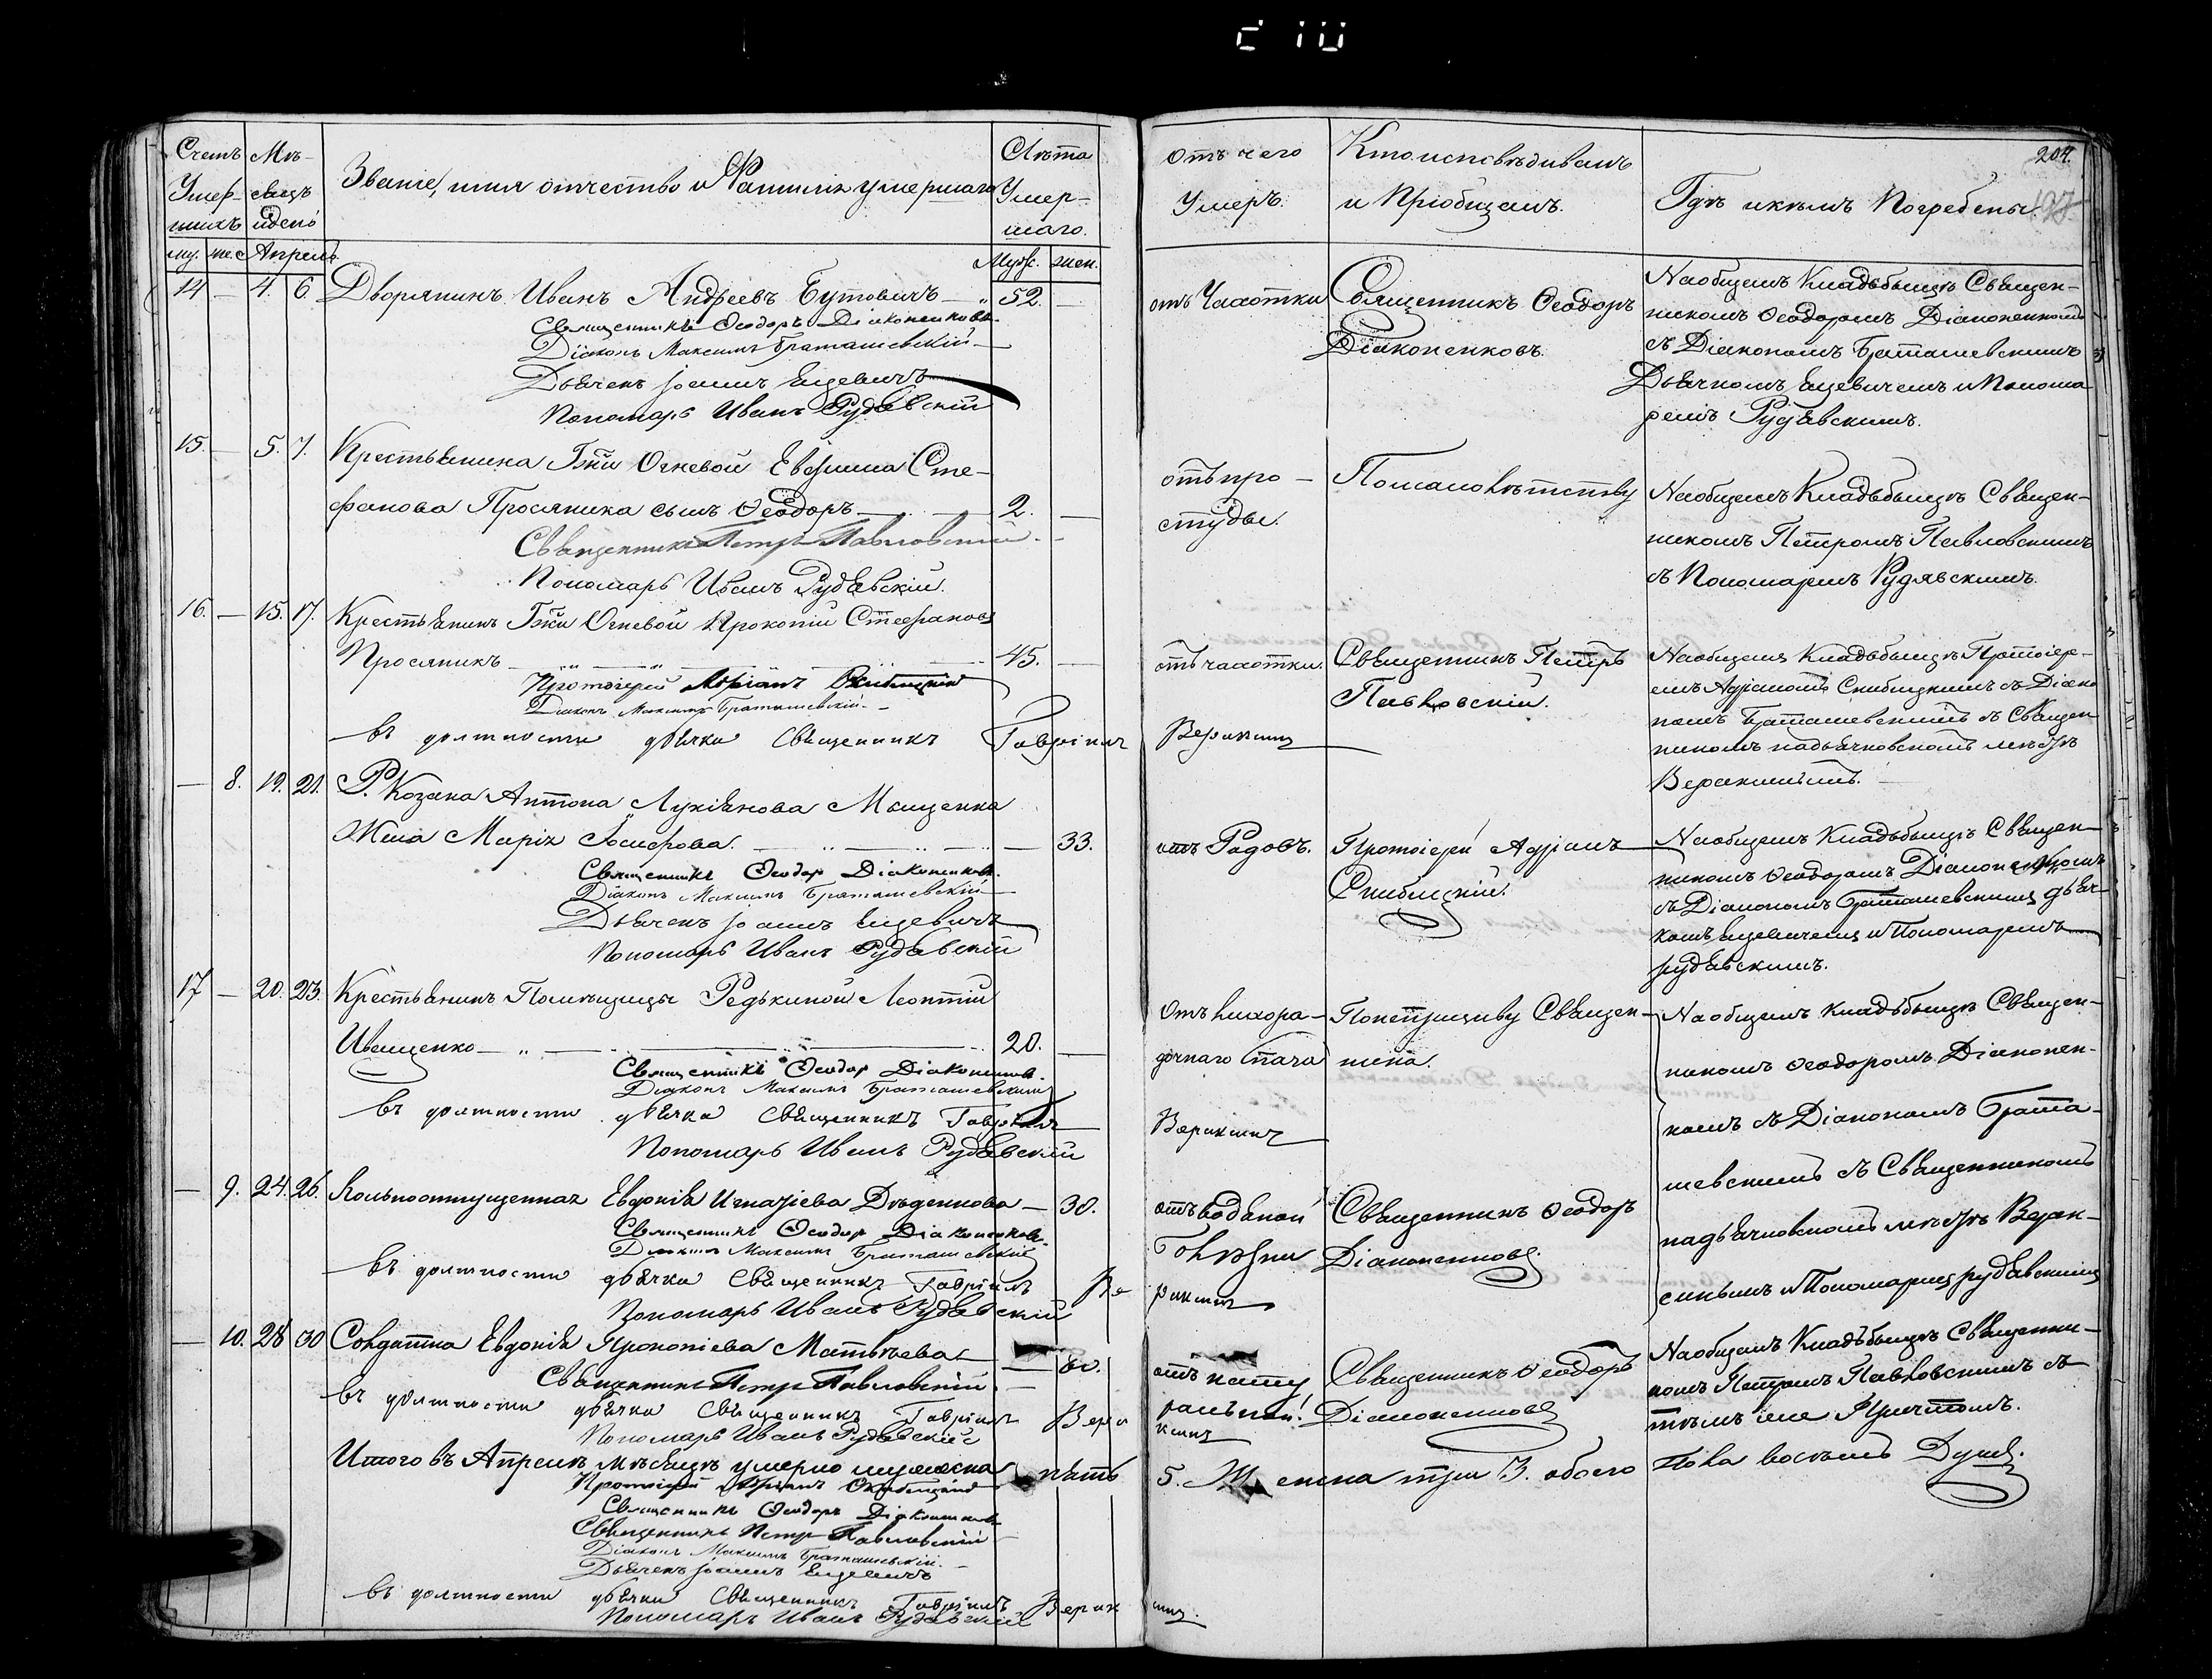 204.
Счетъ Умершихъ
Мѣсяцъ и день
Званіе, имя отчество и Фамилія умершаго
Лѣта Умершаго.
Отъ чего Умеръ.
Кто исповѣдивалъ и Пріобщалъ.
Гдѣ и кѣмъ Погребены.
му. же. Апрель Муж. жен.
14 — 4. 6. Дворянинъ Иванъ Андреевъ Бутовичъ — 52. —
Священникъ Ѳеодоръ Діаконенковъ
Діаконъ Максимъ Браташевскій
Дьячекъ Іоаннъ Ецевичъ
Пономарь Иванъ Рудявскій
отъ Чахотки
Священникъ Ѳеодоръ
Діаконенковъ.
На общемъ Кладьбыщѣ Священ-
никомъ Ѳеодоромъ Діаконенкомъ
съ Діакономъ Браташевскимъ
Дьячкомъ Ецевичемъ и Понома
ремъ Рудявскимъ.
15. — 5. 7. Крестьянина Гжи Огневой Евфима Сте-
фанова Просяника сынъ Ѳеодоръ — 2. —
Священникъ Петръ Павловскій
Пономарь Иванъ Рудявскій.
отъ про-
студы.
По малолѣтству
На общемъ Кладьбыщѣ Священ-
никомъ Петромъ Павловскимъ
съ Пономаремъ Рудявскимъ.
16. — 15. 17. Крестьянинъ Гжи Огневой Прокопій Стефановъ
Просяникъ — 45. —
Протоіерей Адріанъ Скиблицкій
Діаконъ Максимъ Браташевскій
въ должности дьячка Священникъ Гавріилъ Веракшинъ
отъ чахотки.
Священникъ Петръ
Павловскій.
На общемъ Кладьбыщѣ Протоіер-
емъ Адріаномъ Скиблицкимъ съ Діако
номъ Браташевскимъ съ Священ
никомъ надьячковскомъ мѣстѣ
Веракшинымъ.
— 8. 19. 21. Р. Козака Антона Лукіянова Мащенка
Жена Марія Іосифова. — 33.
Священникъ Ѳеодоръ Діаконенковъ
Діаконъ Максимъ Браташевскій
Дьячекъ Іоаннъ Ецевичъ
Пономарь Иванъ Рудявскій
отъ Родовъ.
Протоіерей Адріанъ
Скиблицкій.
На общемъ Кладьбыщѣ Священ-
никомъ Ѳеодоромъ Діаконенкомъ
съ Діакономъ Браташевскимъ дьяч-
комъ Ецевичемъ и Пономаремъ
рудявскимъ.
17 — 20. 23. Крестьянинъ Помѣщицы Редькиной Леонтій
Иващенко — 20. —
Священникъ Ѳеодоръ Діаконенковъ
Діаконъ Максимъ Браташевскій
въ должности дьячка Священникъ Гавріилъ Веракшинъ
Пономарь Иванъ Рудявскій
Отъ лихора-
дочнаго
По неприщиву Священ-
ника.
На общемъ кладьбыщѣ Священ-
никомъ Ѳеодоромъ Діаконен-
комъ съ Діакономъ Брата-
шевскимъ съ Священникомъ
надьячковскомъ мѣстѣ Верак-
синымъ и Пономаремъ рудявскимъ
— 9. 24. 26. Вольноотпущенная Евдокія Игнатіева Дѣденкова — 30.
Священникъ Ѳеодоръ Діаконенковъ
Діаконъ Максимъ Браташевскій
въ должности дьячка Священникъ Гавріилъ Веракшинъ
Пономарь Иванъ Рудявскій
отъ водяной
болѣзни
Священникъ Ѳеодоръ
Діаконенковъ.
— 10. 28 30 Солдатка Евдокія Прокопіева Матвѣева — 60.
Священникъ Петръ Павловскій
въ должности дьячка Священникъ Гавріилъ Веракшинъ
Пономарь Иванъ Рудявскій
отъ
Священникъ Ѳеодоръ
Діаконенковъ
На общемъ Кладьбыщѣ Священни-
комъ Петромъ Павловскимъ съ
тѣмъ же Причтомъ.
Итого въ Апрелѣ мѣсяцѣ умерло мужеска пять 5. Женска три 3. обоего пола восемь Душъ.
Протоіерей Адріанъ Скиблицкій
Священникъ Ѳеодоръ Діаконенковъ
Священникъ Петръ Павловскій
Діаконъ Максимъ Браташевскій
Дьячекъ Іоаннъ Ецевичъ
въ должности дьячка Священникъ Гавріилъ Веракшинъ.
Пономарь Иванъ Рудявскій